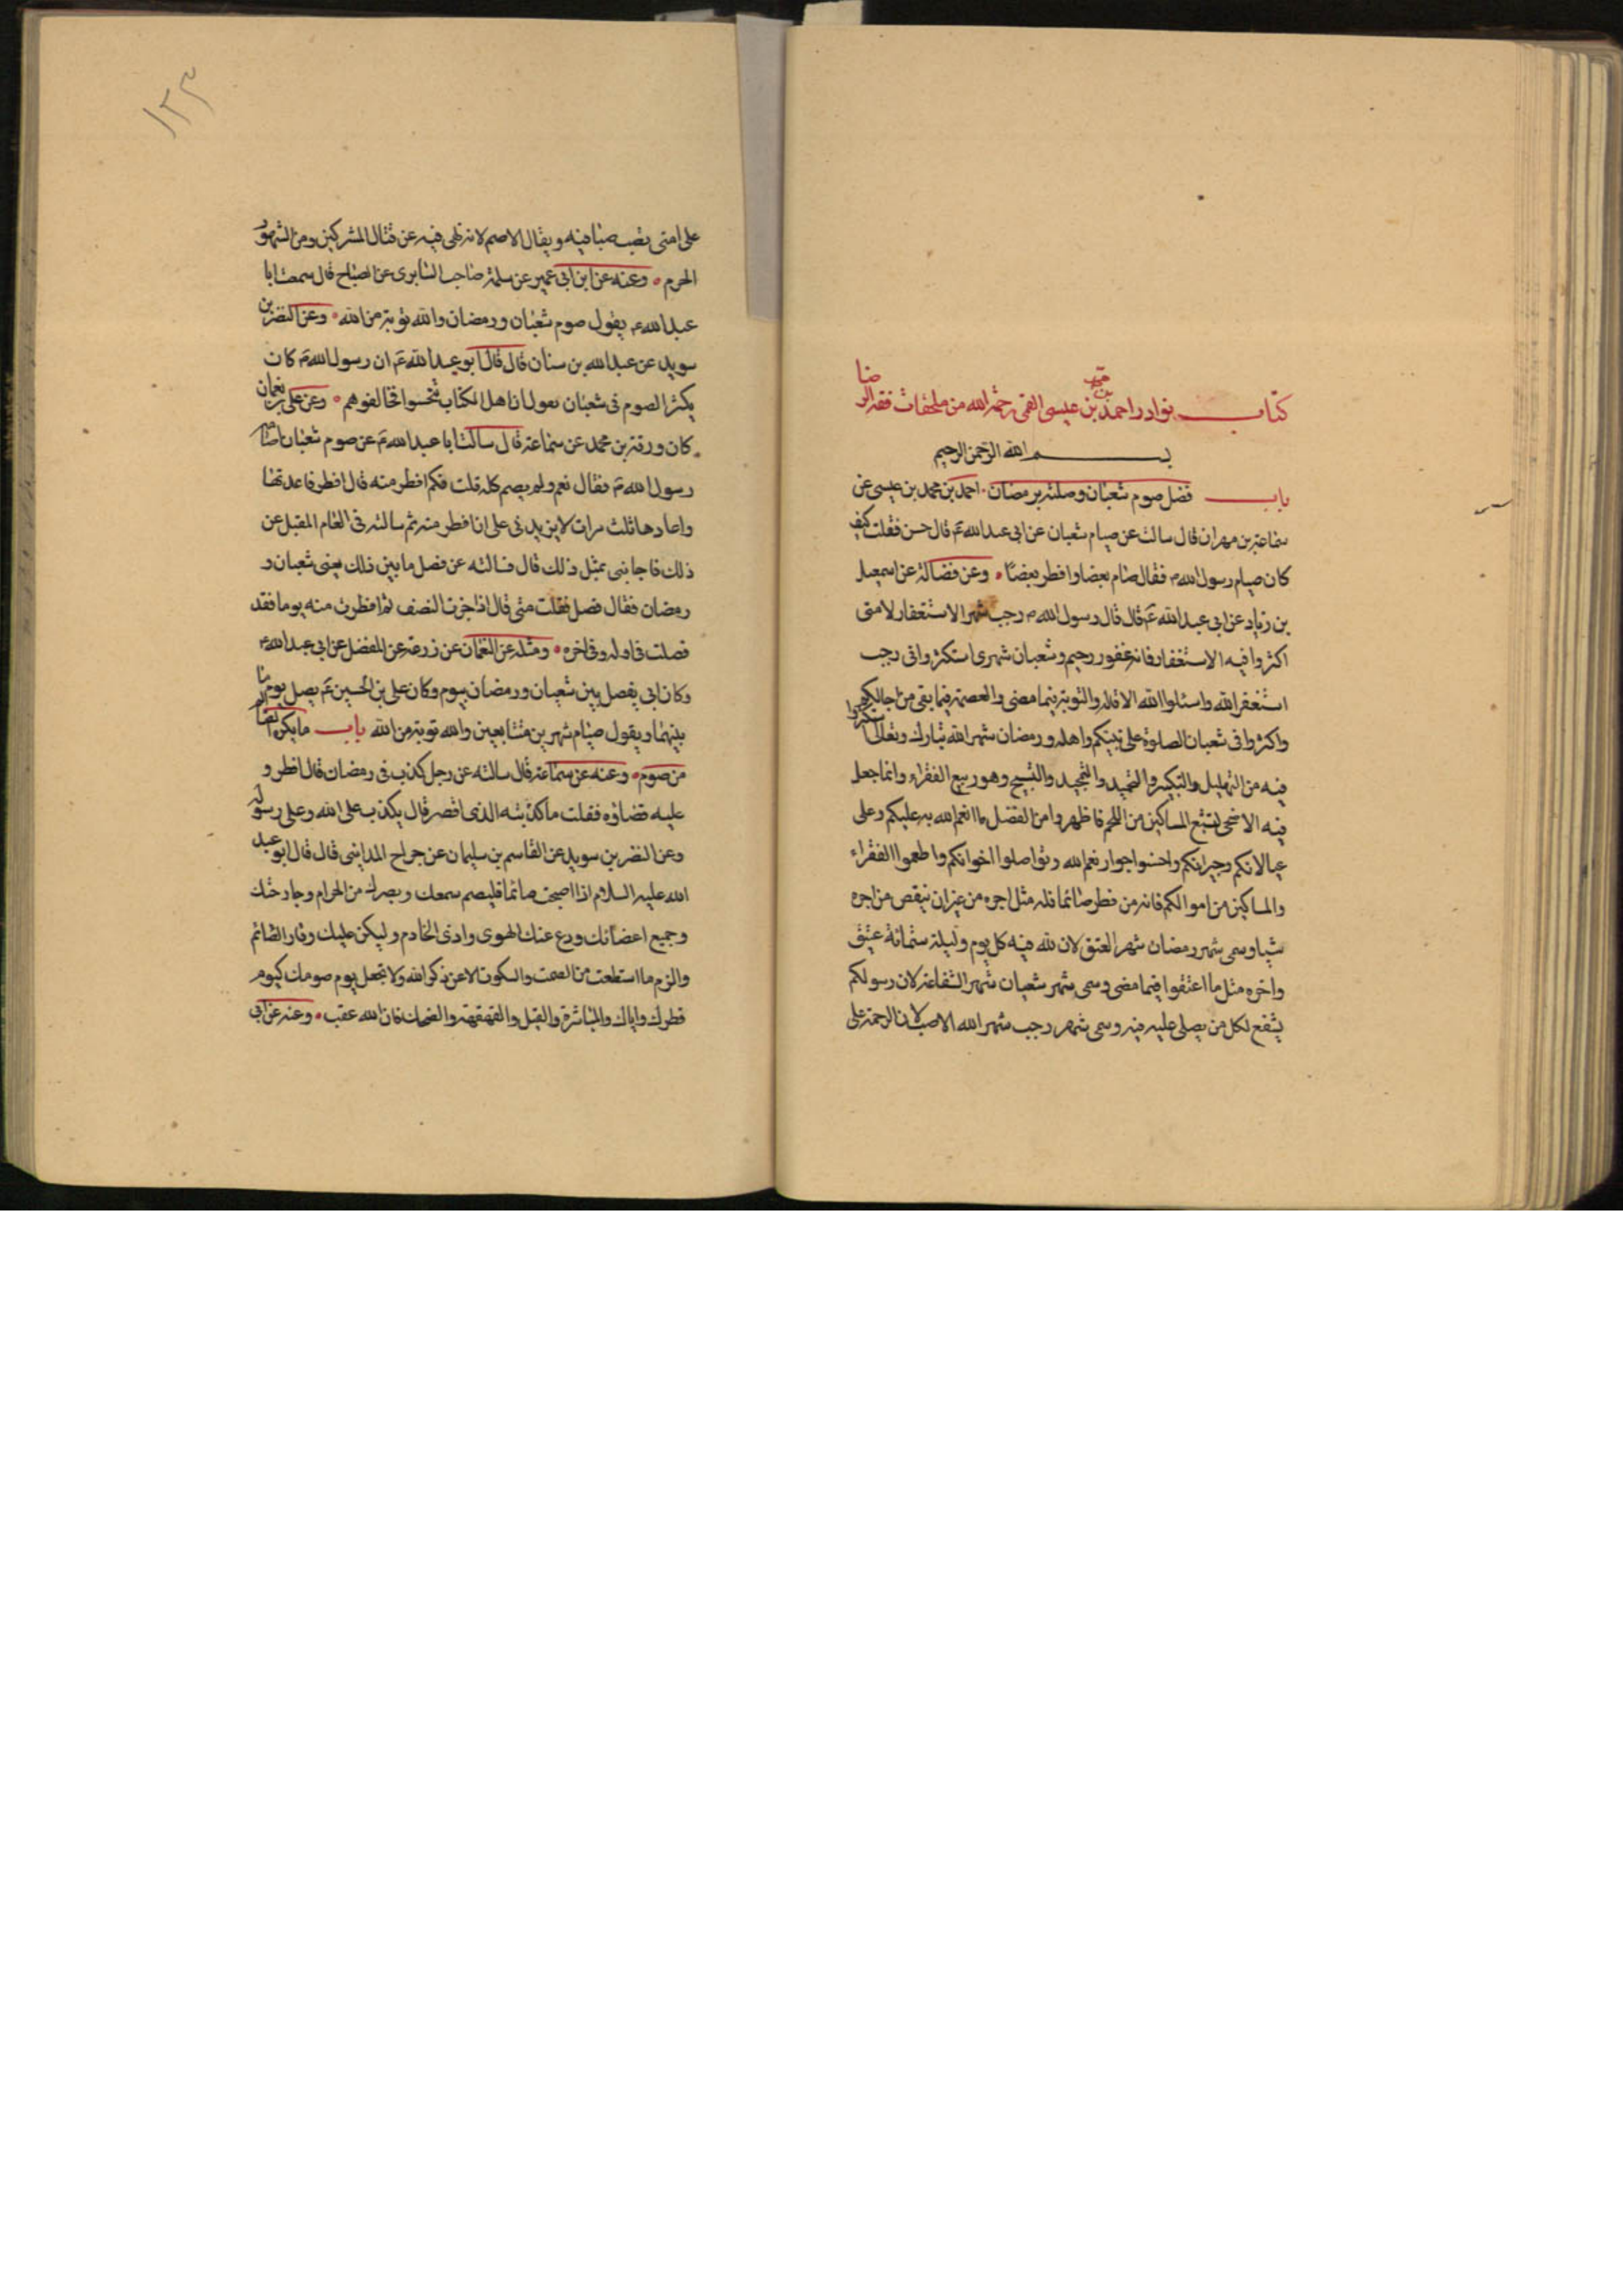 كتاب نوادر احمد بن محمد بن عيسى القمى رحمة الله من ملحقات فقه الرضا
بسم الله الرحمن الرحيم
باب فضل صوم شعبان وصلته برمضان احمد بن محمد بن عيسى عن
سماعة بن مهران قال سالت عن صيام شعبان عن ابى عبد الله ع قال حسن فقلت كيف
كان صيام رسول الله ص فقال صام بعضا وافطر بعضا وعن فضالة عن اسمعيل
بن زياد عن ابى عبد الله ع قال قال رسول الله ص رجب شهر الاستغفار لامتى
اكثروا فيه الاستغفار فانه غفور رحيم وشعبان شهرى استكثروا فى رجب
استغفر الله واسئلوا الله الاقالة والتوبة فيما مضى والعصمة فيما بقى من اجالكم
واكثروا فى شعبان الصلوة على نبيكم واهله ورمضان شهر الله تبارك وتعالى استكثروا
فيه من التهليل والتكبير والتحميد والتمجيد والتسبيح وهو ربيع الفقراء وانما جعل
فيه الاضحى لتشبع المساكين من اللحم فاظهروا من الفضل ما انعم الله به عليكم وعلى
عيالاتكم وجيرانكم واحسنوا جوار نعم الله وتواصلوا اخوانكم واطعموا الفقراء
والمساكين من اموالكم فانه من فطر صائما فله مثل اجره من غير ان ينقص من اجره
شيئا وسمى شهر رمضان شهر العتق لان لله فيه كل يوم وليلة ستمائة عتيق
واخره مثل ما اعتقوا فيما مضى وسمى شهر شعبان شهر الشفاعة لان رسولكم
يشفع لكل من يصلى عليه فيه وسمى شهر رجب شهر الله الاصب لان الرحمة على
١٢٣
على امتى تصب صبا فيه ويقال الاصم لانه نهى فيه عن قتال المشركين ومن الشهور
الحرم وعنه عن ابن ابى عمير عن سلمة صاحب السابرى عن الصباح قال سمعت ابا
عبد الله ع يقول صوم شعبان ورمضان والله توبة من الله وعن النضر بن
سويد عن عبد الله بن سنان قال قال ابو عبد الله ع ان رسول الله ص كان
يكثر الصوم فى شعبان يقول ان اهل الكتاب تنحسوا فخالفوهم وعن على بن نعمان
كان ورقة بن محمد عن سماعة قال سالت ابا عبد الله ع عن صوم شعبان اصامه
رسول الله ص فقال نعم ولم يصم كله قلت فكم افطر منه قال افطر فاعدتها
واعادها ثلث مرات لا يزيدنى على ان افطر منه ثم سالته فى العام المقبل عن
ذلك فاجابنى بمثل ذلك قال فسالته عن فصل ما بين ذلك يعنى شعبان و
رمضان فقال فصل فقلت متى قال اذا جزت النصف ثم افطرت منه يوما فقد
فصلت فى اوله وفى اخره ومثله عن النعمان عن زرعة عن المفضل عن ابى عبد الله ع
وكان ابى يفصل بين شعبان ورمضان بيوم وكان على بن الحسين ع يصل يوم ما
بينهما ويقول صيام شهرين متتابعين والله توبة من الله باب ما يكره للصائم
من صوم وعنه عن سماعة قال سالته عن رجل كذب فى رمضان قال افطر و
عليه قضاؤه فقلت ما كذبته الذى افطر قال يكذب على الله وعلى رسوله
وعن النضر بن سويد عن القاسم بن سليمان عن جراح المداينى قال قال ابو عبد
الله عليه السلام اذا اصبحت صائما فليصم سمعك وبصرك من الحرام وجارحتك
وجميع اعضائك ودع عنك الهوى واذى الخادم وليكن عليك وقار الصائم
والزم ما استطعت من الصمت والسكوت الا عن ذكر الله ولا تجعل يوم صومك كيوم
فطرك واياك والمباشرة والقبل والقهقهة والضحك فان الله عقب وعنه عن ابى